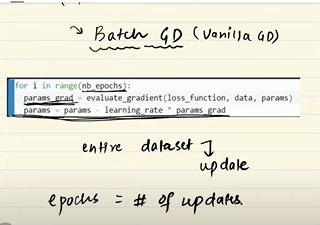 ↘ Batch GD (Vanilla GD)
for i in range(nb_epochs):
params_grad = evaluate_gradient(loss_function, data, params)
params = params - learning_rate * params_grad
entire dataset
update
epochs = # of updates.